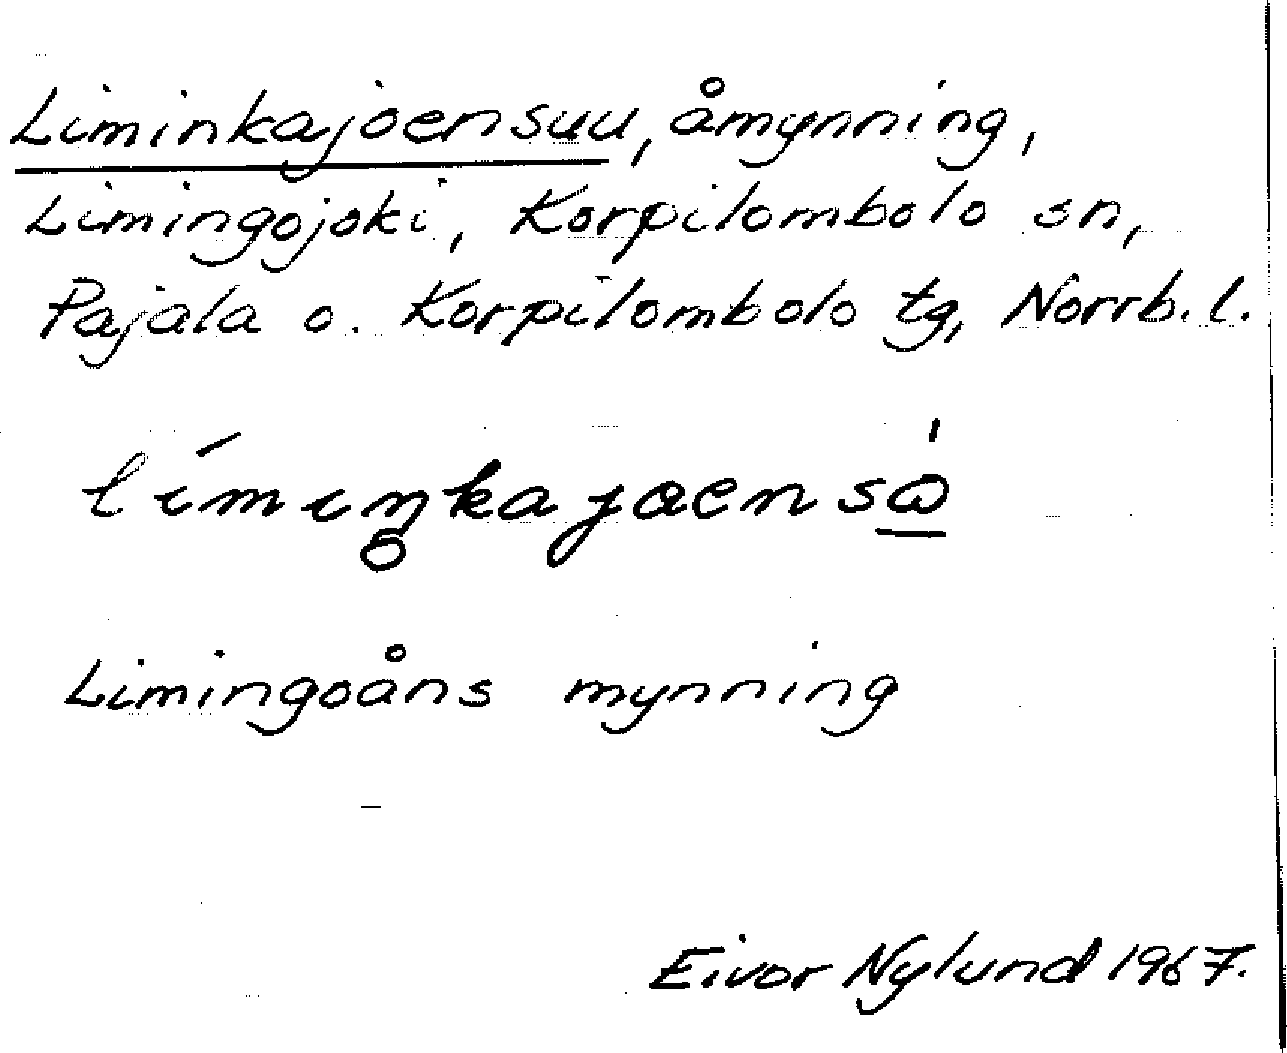 Liminkajoensuu, åmynning,
Limingojoki, Korpilombolo sn,
Pajala o. Korpilombolo tg, Norrb. l.
Limingoåns mynning
Eivor Nylund 1967.